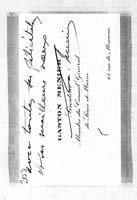 avec toutes ses félicitations
et ses meilleurs vœux
GASTON MENIER
Membre du Conseil Général
de Seine et Marne
61 rue de Monceau